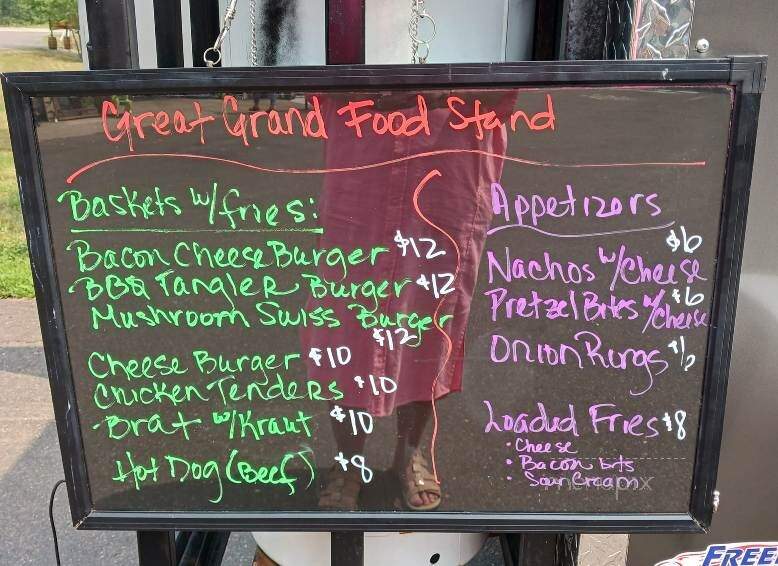 Great Grand Food Stand
Baskets w/fries:
Bacon Cheese Burger $12
BBQ Tangler Burger $12
Mushroom Swiss Burger
$12
Cheese Burger $10
Chicken Tenders $10
Brat w/Kraut $10
Hot Dog (Beef) $8
Appetizers
$6
Nachos w/Cheese
Pretzel Bites w/Cheese $6
Onion Rings $6
Loaded Fries $8
• Cheese
• Bacon bits
• Sour Cream
FREE